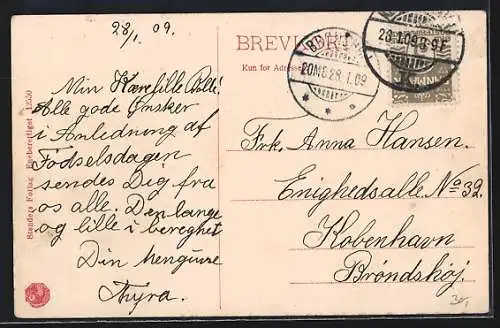 28/1 09.
BREVKORT
Kun for Adressen
28.1.09
20MB 28.1.09
Min Kære lille Polle!
Alle gode Ønsker
i Anledning af
Fødselsdagen
sendes Dig fra
os alle. Den lange
og lille i
Din hengivne
Thyra.
Frk. Anna Hansen.
Enighedsalle No 39.
København
Brøndshøj.
Stenders Forlag. Eneberettiget